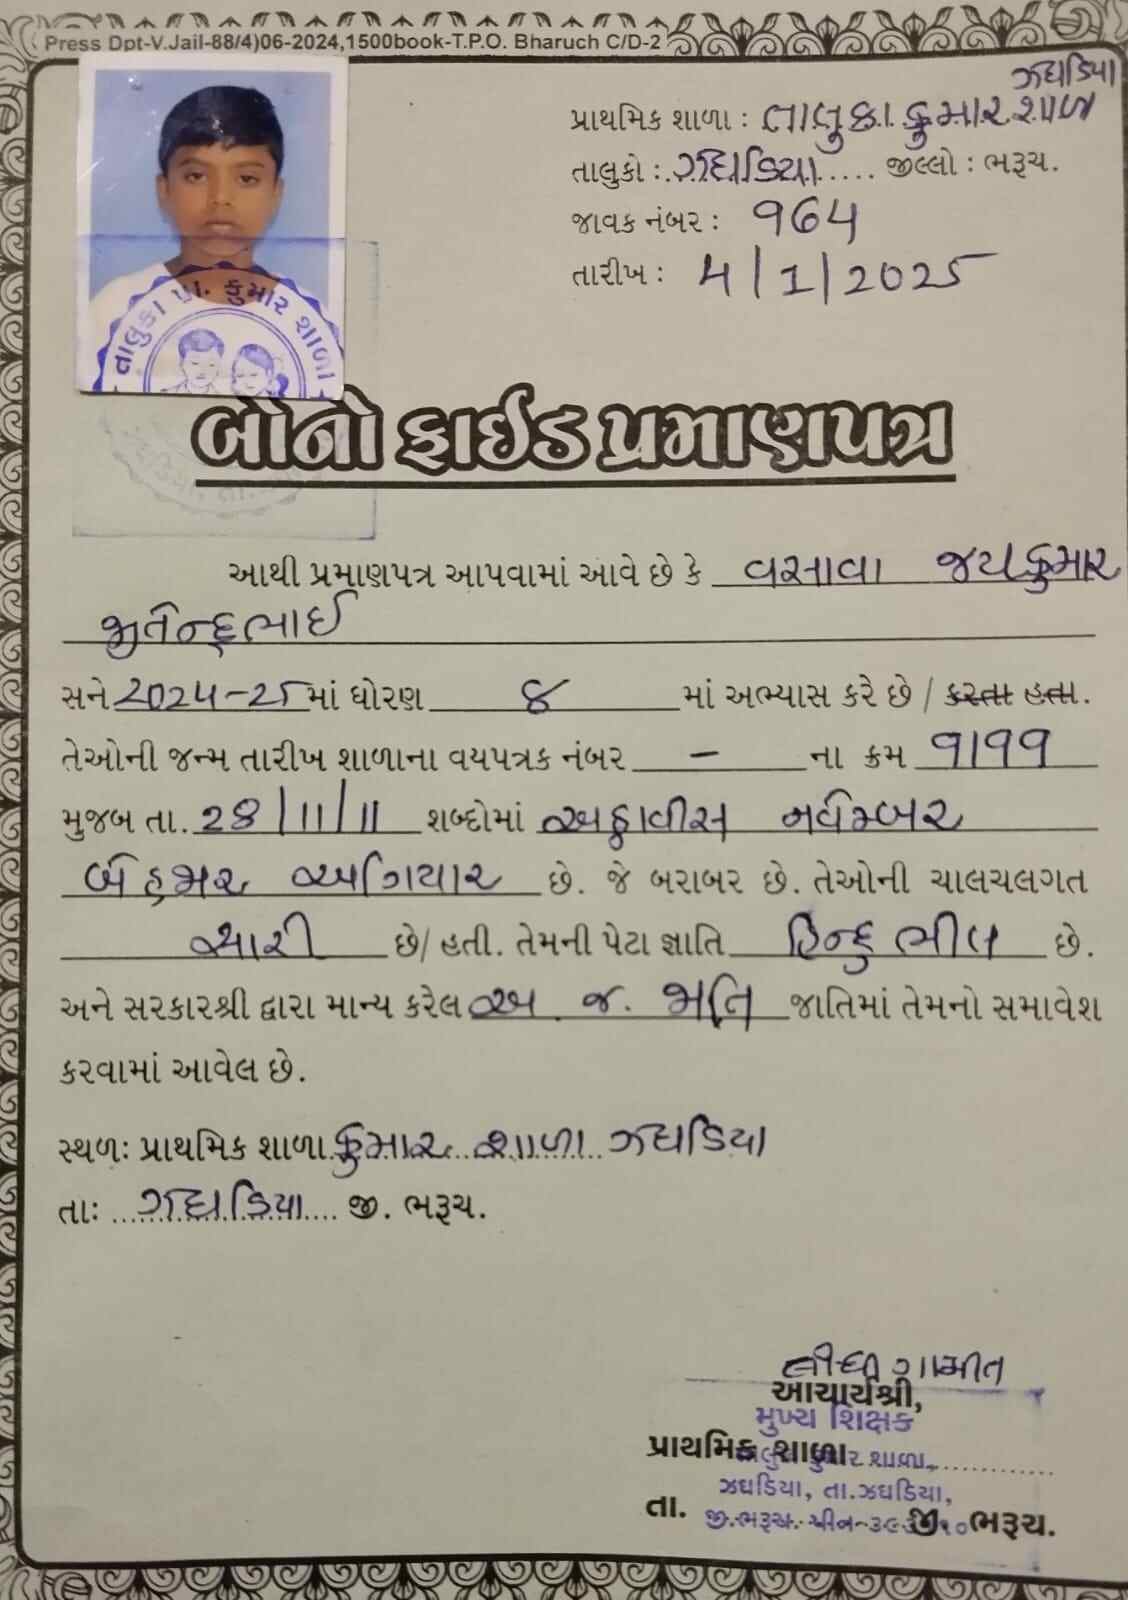 Press Dpt-V.Jail-88/4)06-2024,1500book-T.P.O. Bharuch C/D-2
ઝઘડિયા
પ્રાથમિક શાળા : તાલુકા કુમાર શાળા
તાલુકો : ઝઘડિયા ..... જીલ્લો : ભરૂચ.
જાવક નંબર : ૧૬4
તારીખ : 4/1/2025
તાલુકા પ્રા. કુમાર શાળા
બોનોફાઈડ પ્રમાણપત્ર
આથી પ્રમાણપત્ર આપવામાં આવે છે કે વસાવા જયકુમાર
જીતેન્દ્રભાઈ
સને 2024-25 માં ધોરણ ૪ માં અભ્યાસ કરે છે / કરતા હતા.
તેઓની જન્મ તારીખ શાળાના વયપત્રક નંબર - ના ક્રમ ૧૧૧૧
મુજબ તા. 28/11/11 શબ્દોમાં અઠ્ઠાવીસ નવેમ્બર
બે હજાર અગિયાર છે. જે બરાબર છે. તેઓની ચાલચલગત
સારી છે/ હતી. તેમની પેટા જ્ઞાતિ હિન્દુ ભીલ છે.
અને સરકારશ્રી દ્વારા માન્ય કરેલ અ. જ. જાતિ જાતિમાં તેમનો સમાવેશ
કરવામાં આવેલ છે.
સ્થળઃ પ્રાથમિક શાળા કુમાર શાળા ઝઘડિયા
તાઃ ઝઘડિયા .... જી. ભરૂચ.
ગામીત
આચાર્યશ્રી,
મુખ્ય શિક્ષક
પ્રાથમિક શાળા ..............
કુમાર શાળા,
ઝઘડિયા, તા.ઝઘડિયા,
તા. જી. ભરૂચ.
જી.ભરૂચ.